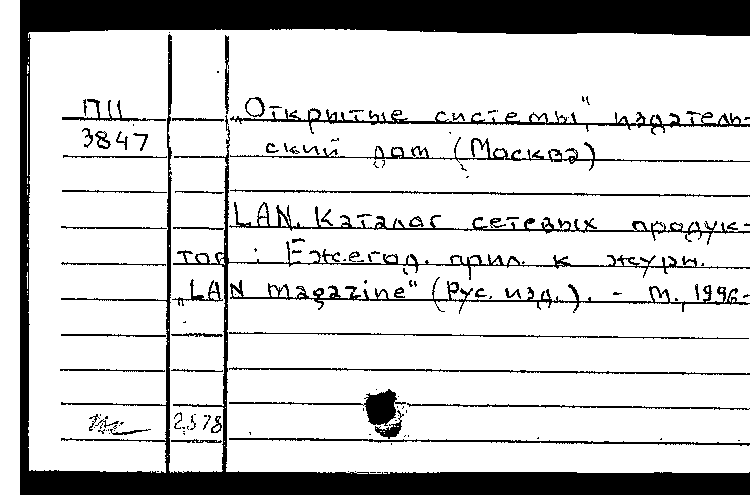 ПП
3847
„Открытые системы", издатель-
ский дом (Москва)
LAN. Каталог сетевых продук-
тов : Ежегод. прил. к журн.
„LAN magazine" (Рус. изд.). - М., 1996-
2578